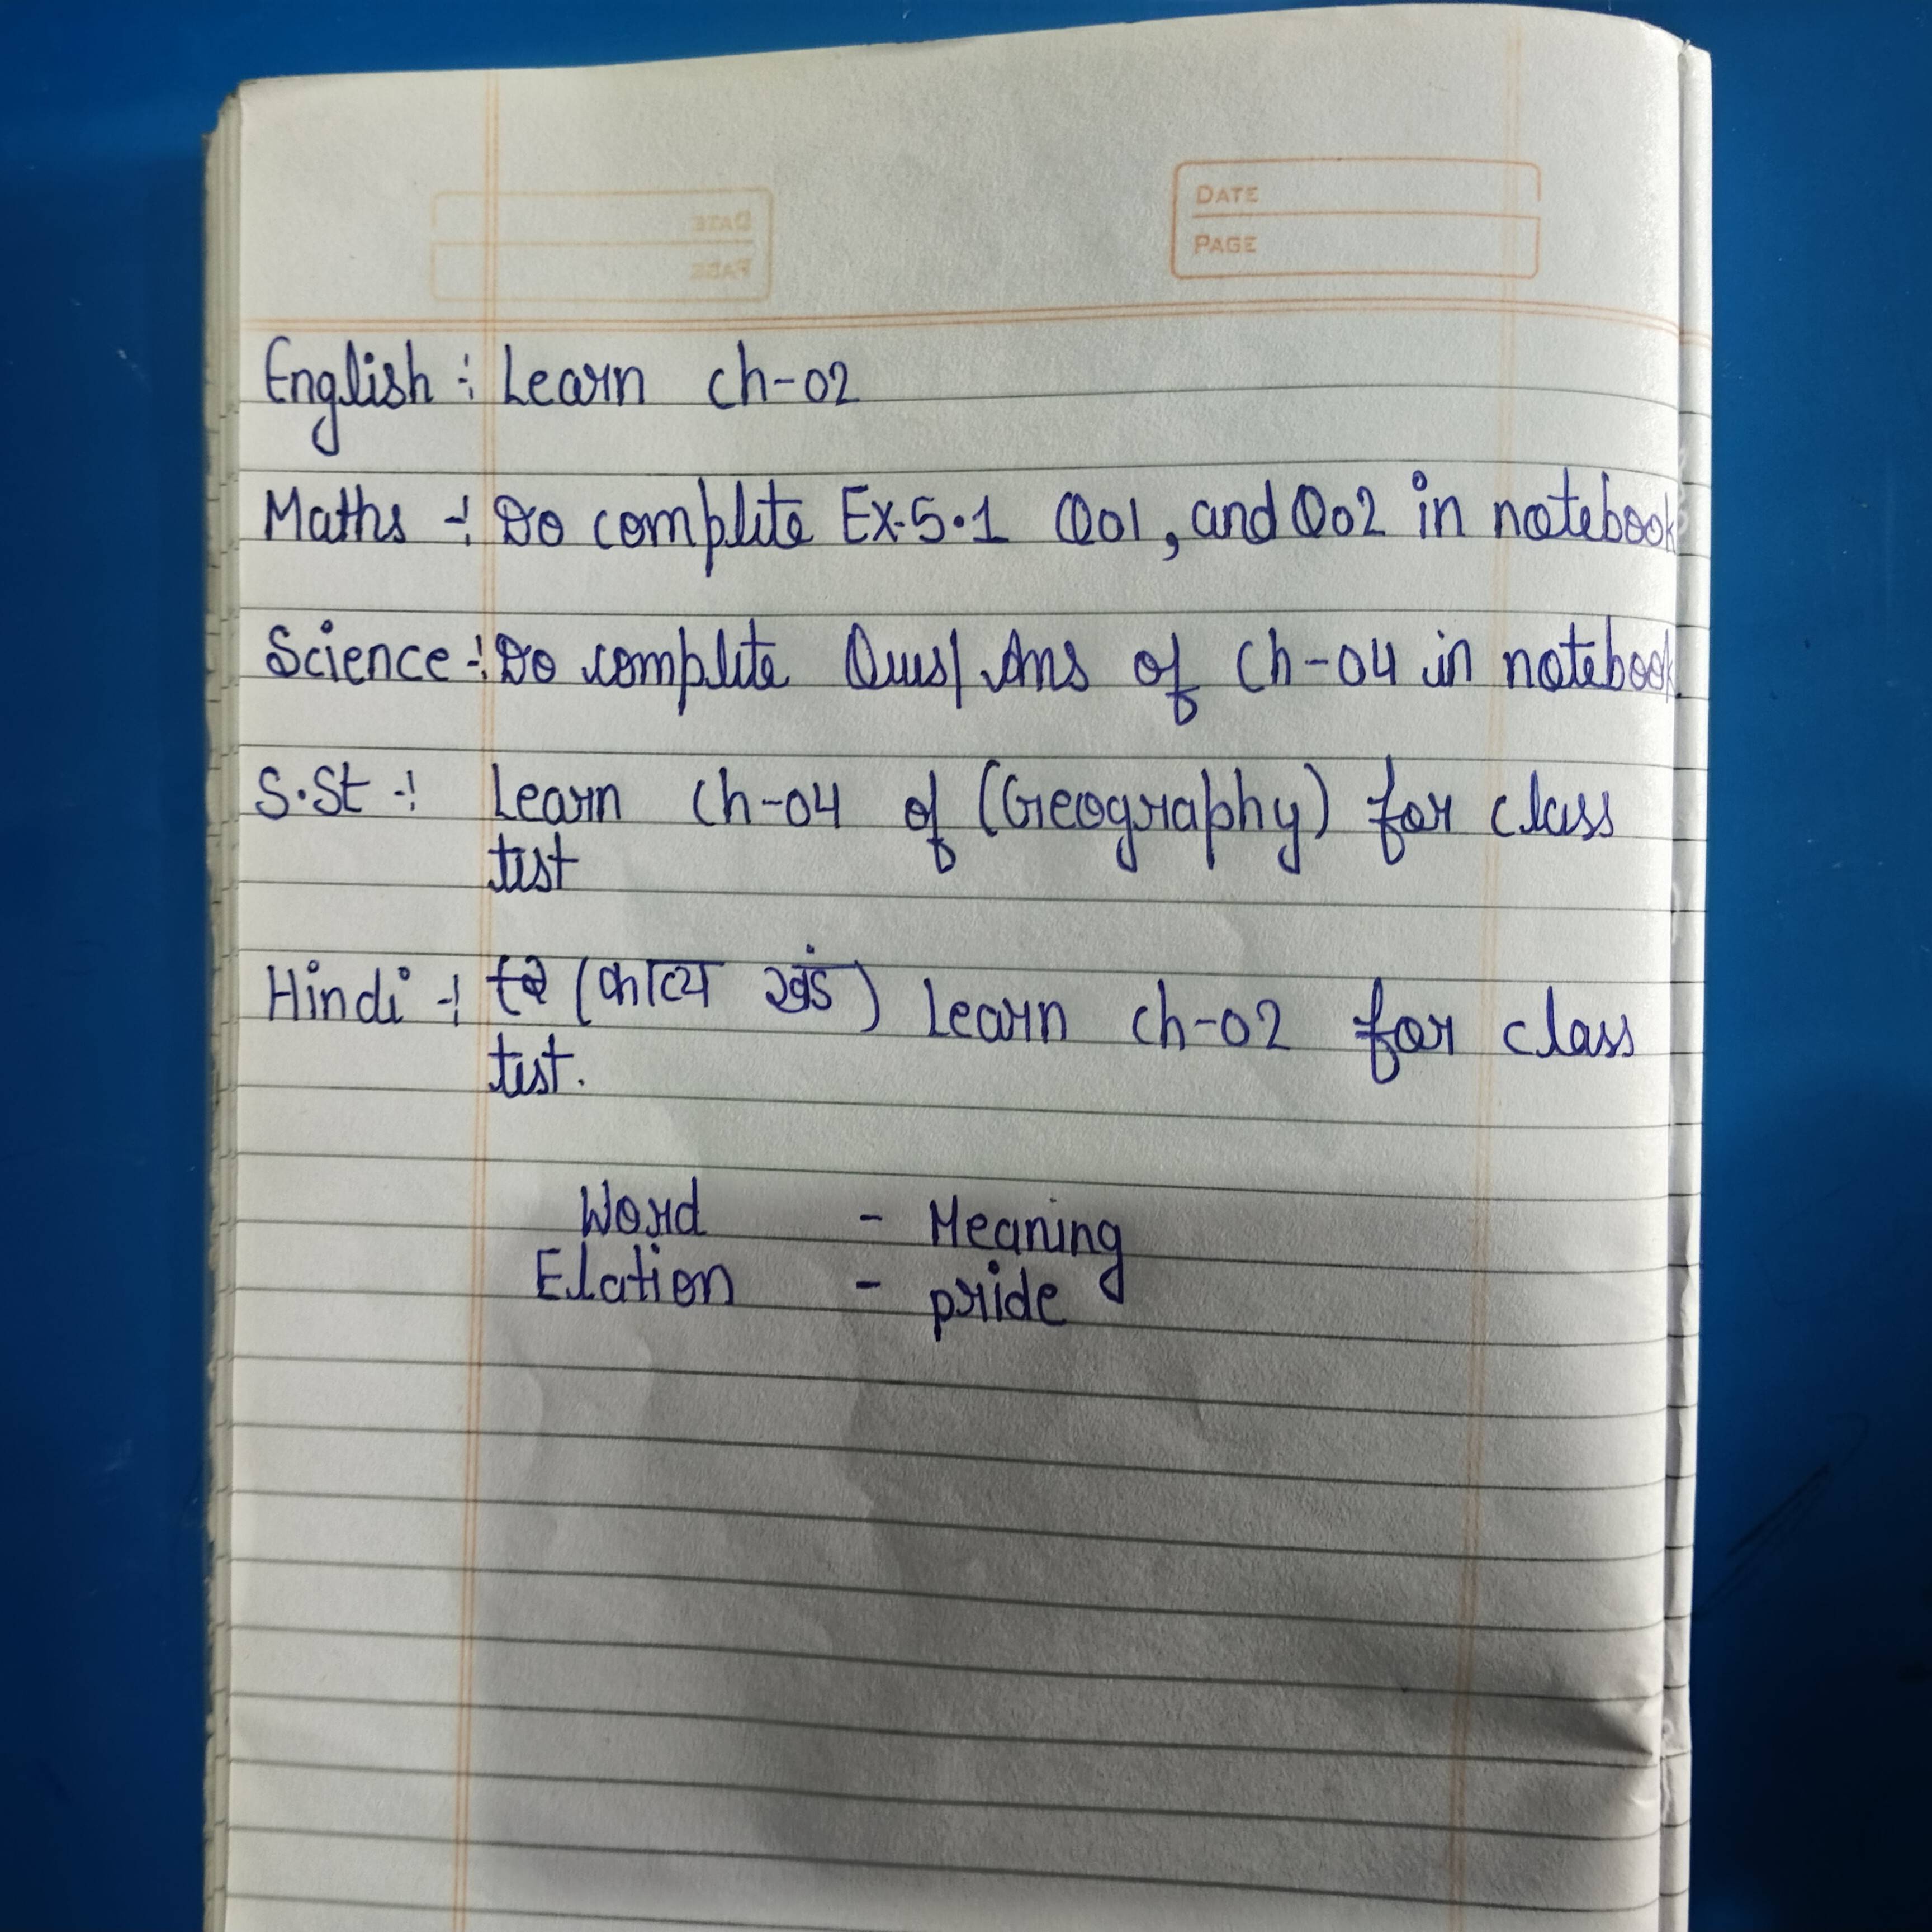 DATE
PAGE
English :- Learn ch-02
Maths -: Do complite Ex-5.1 Q01, and Q02 in notebook
Science -: Do complite Ques/Ans of Ch-04 in notebook
S.St -: Learn Ch-04 of (Geography) for class
test
Hindi -: (काव्य खंड) Learn ch-02 for class
test.
Word - Meaning
Elation - pride